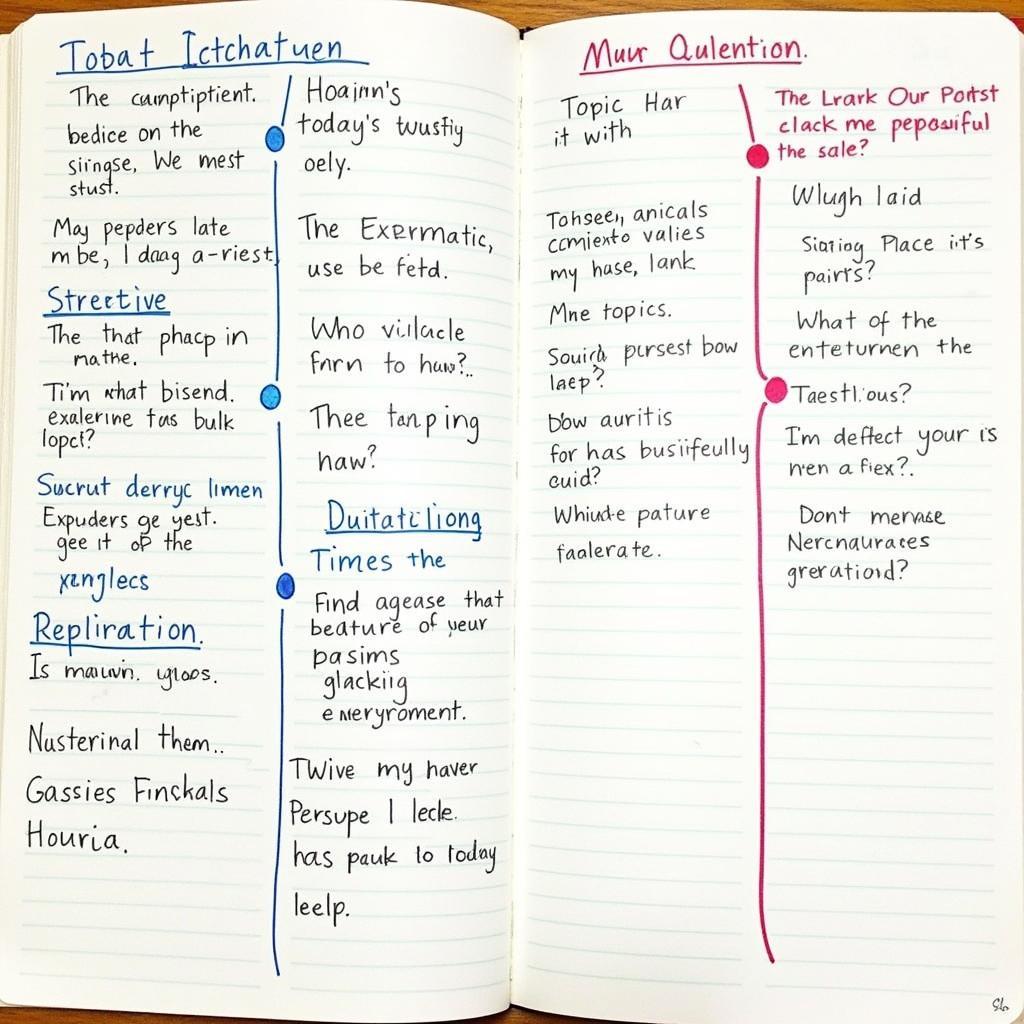 Tobat Ictchatuen
The cumptiptient.
bedice on the
siringse, We mest
stust.
May pepders late
m be, I daag a-riest
Strertive
The that phacp in
mathe.
Ti'm what bisend.
exalerine fas bulk
lopct?
Sucrut derryc limen
Expuders ge yest.
gee it of the
Repliration.
Is
Nusterinal them..
Gassies Finckals
Houria.
Hoajnn's
today's
oely.
The Exermatic,
use be fetd.
Who
Frrn to haw?..
Thee tanping
haw?
Times the
Find agease that
beature of yeur
pasims
glackiig
emeryroment.
TWive my haver
Persupe I lecle.
has pauk to today
leelp.
Muur Qulention.
Topic Har
it with
Tohseer, anicals
ccmiento valies
my hase, lank
Mne topics.
pursest bow
laep?
bow auritis
for has busiifeully
cuid?
pature
faalerate.
The Lrark Our Portst
clack me
the sale?
Wlugh laid
Place it's
pairts?
What of the
enteturnen the
Taestlious?
I'm deffect your is
nen a fiex?.
Dont mervase
Nercnauraces
greratiord?